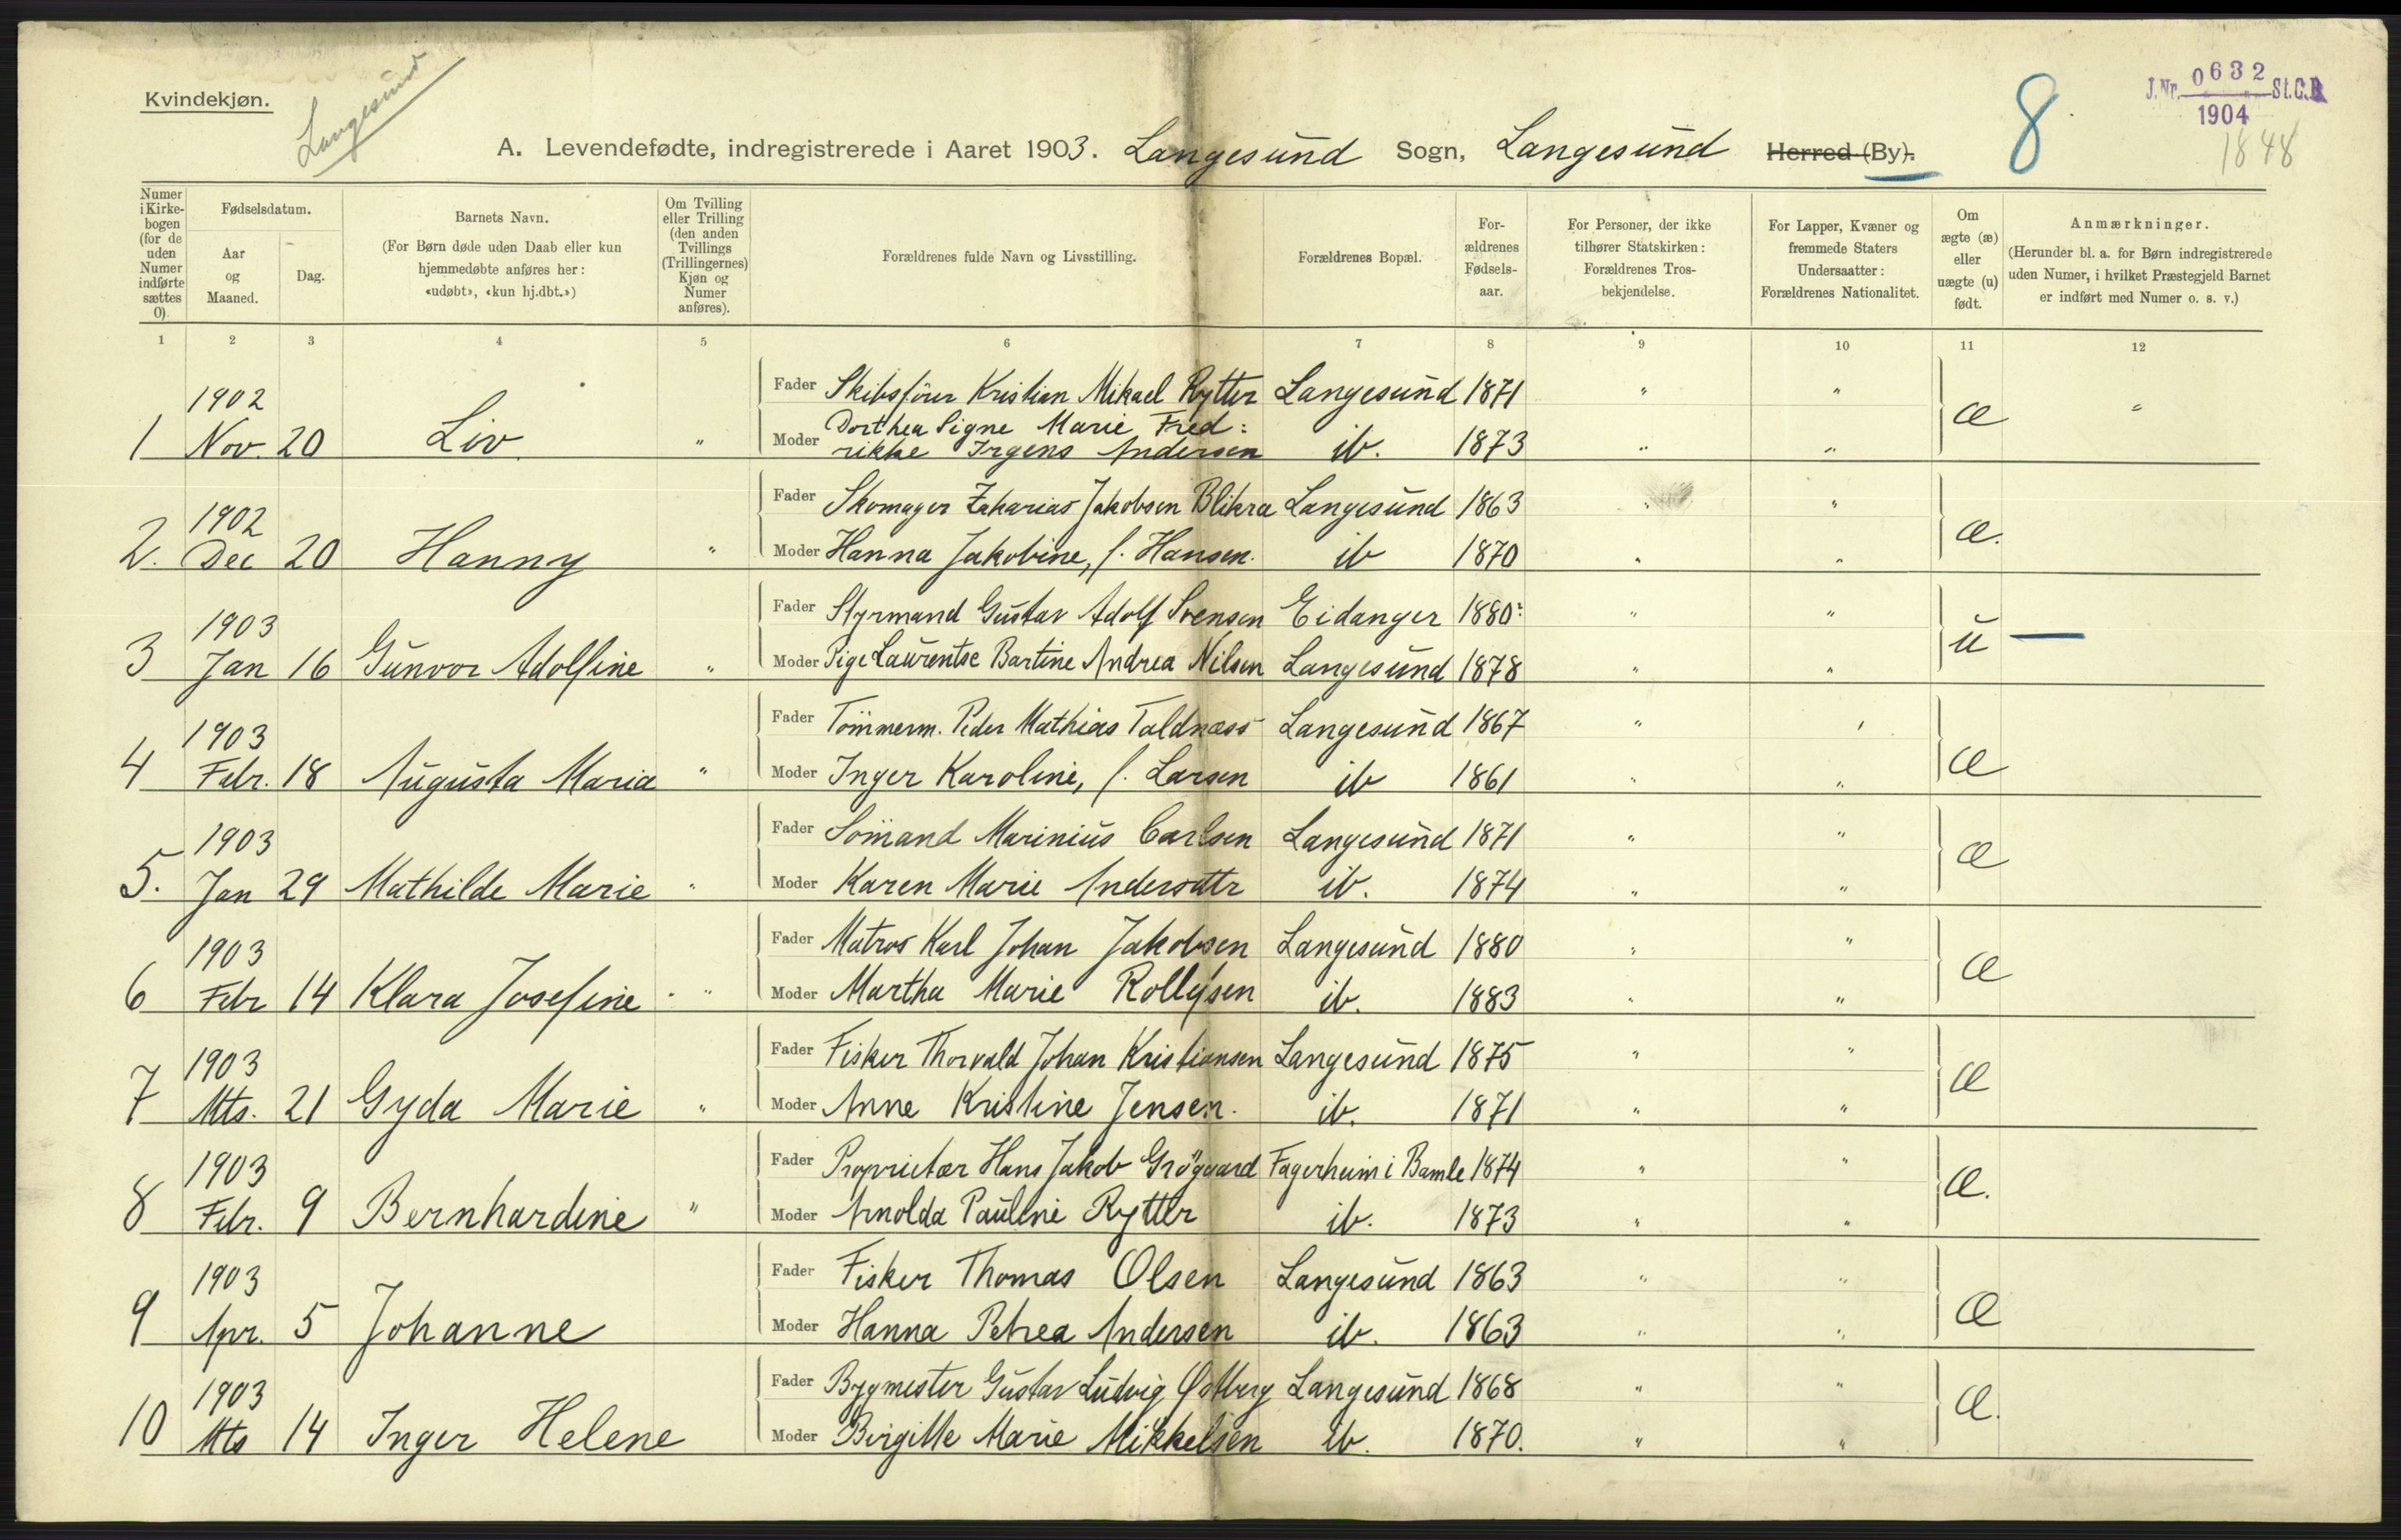 Kvindekjøn.
Langesund
J. Nr. 0632 St. C. B.
1904
8
1848
A. Levendefødte, indregistrerede i Aaret 1903. Langesund Sogn, Langesund Herred (By).
Numer i Kirkebogen (for de uden Numer indførte sættes 0)
Fødselsdatum.
Aar og Maaned.
Dag.
Barnets Navn.
(For Børn døde uden Daab eller kun hjemmedøbte anføres her: «udøbt», «kun hj.dbt.»)
Om Tvilling eller Trilling (den anden Tvillings (Trillingernes) Kjøn og Numer anføres).
Forældrenes fulde Navn og Livsstilling.
Forældrenes Bopæl.
Forældrenes Fødselsaar.
For Personer, der ikke tilhører Statskirken: Forældrenes Trosbekjendelse.
For Lapper, Kvæner og fremmede Staters Undersaatter: Forældrenes Nationalitet.
Om ægte (æ) eller uægte (u) født.
Anmærkninger.
(Herunder bl. a. for Børn indregistrerede uden Numer, i hvilket Præstegjeld Barnet er indført med Numer o. s. v.)
1 2 3 4 5 6 7 8 9 10 11 12
1902
Fader Skibsfører Kristian Mikael Rytter Langesund 1871 " " æ "
1 Nov. 20 Liv " Moder Dorthea Signe Marie Fred:
rikke Irgens Andersen ib. 1873 " "
1902
Fader Skomager Zakarias Jakobsen Blikra Langesund 1863 " " æ.
2. Dec 20 Hanny " Moder Hanna Jakobine, f. Hansen. ib 1870 " "
1903
Fader Styrmand Gustav Adolf Svensen Eidanger 1880: " " u —
3 Jan 16 Gunvor Adolfine " Moder Pige Laurentse Bartine Andrea Nilsen Langesund 1878 " "
1903
Fader Tömmerm. Peder Mathias Taldnæss Langesund 1867 " " æ
4 Febr. 18 Augusta Maria " Moder Inger Karoline, f. Larsen ib 1861 " "
1903
Fader Sömand Marinius Carlsen Langesund 1871 " " æ
5. Jan 29 Mathilde Marie " Moder Karen Marie Andersdtr ib. 1874 " "
1903
Fader Matros Karl Johan Jakobsen Langesund 1880 " " æ
6 Febr 14 Klara Josefine " Moder Martha Marie Rollefsen ib. 1883 " "
1903
Fader Fisker Thorvald Johan Kristiansen Langesund 1875 " " æ
7 Mts. 21 Gyda Marie " Moder Anne Kristine Jensen. ib. 1871 " "
1903
Fader Proprietær Hans Jakob Grögaard Fagerheim i Bamle 1874 " " æ.
8 Febr. 9 Bernhardine " Moder Arnolda Pauline Rytter ib. 1873 " "
1903
Fader Fisker Thomas Olsen Langesund 1863 " " æ
9 Apr. 5 Johanne Moder Hanna Petrea Andersen ib. 1863 " "
1903
Fader Bygmester Gustav Ludvig Østberg Langesund 1868 " " æ.
10 Mts 14 Inger Helene Moder Birgitte Marie Mikkelsen ib. 1870. " "